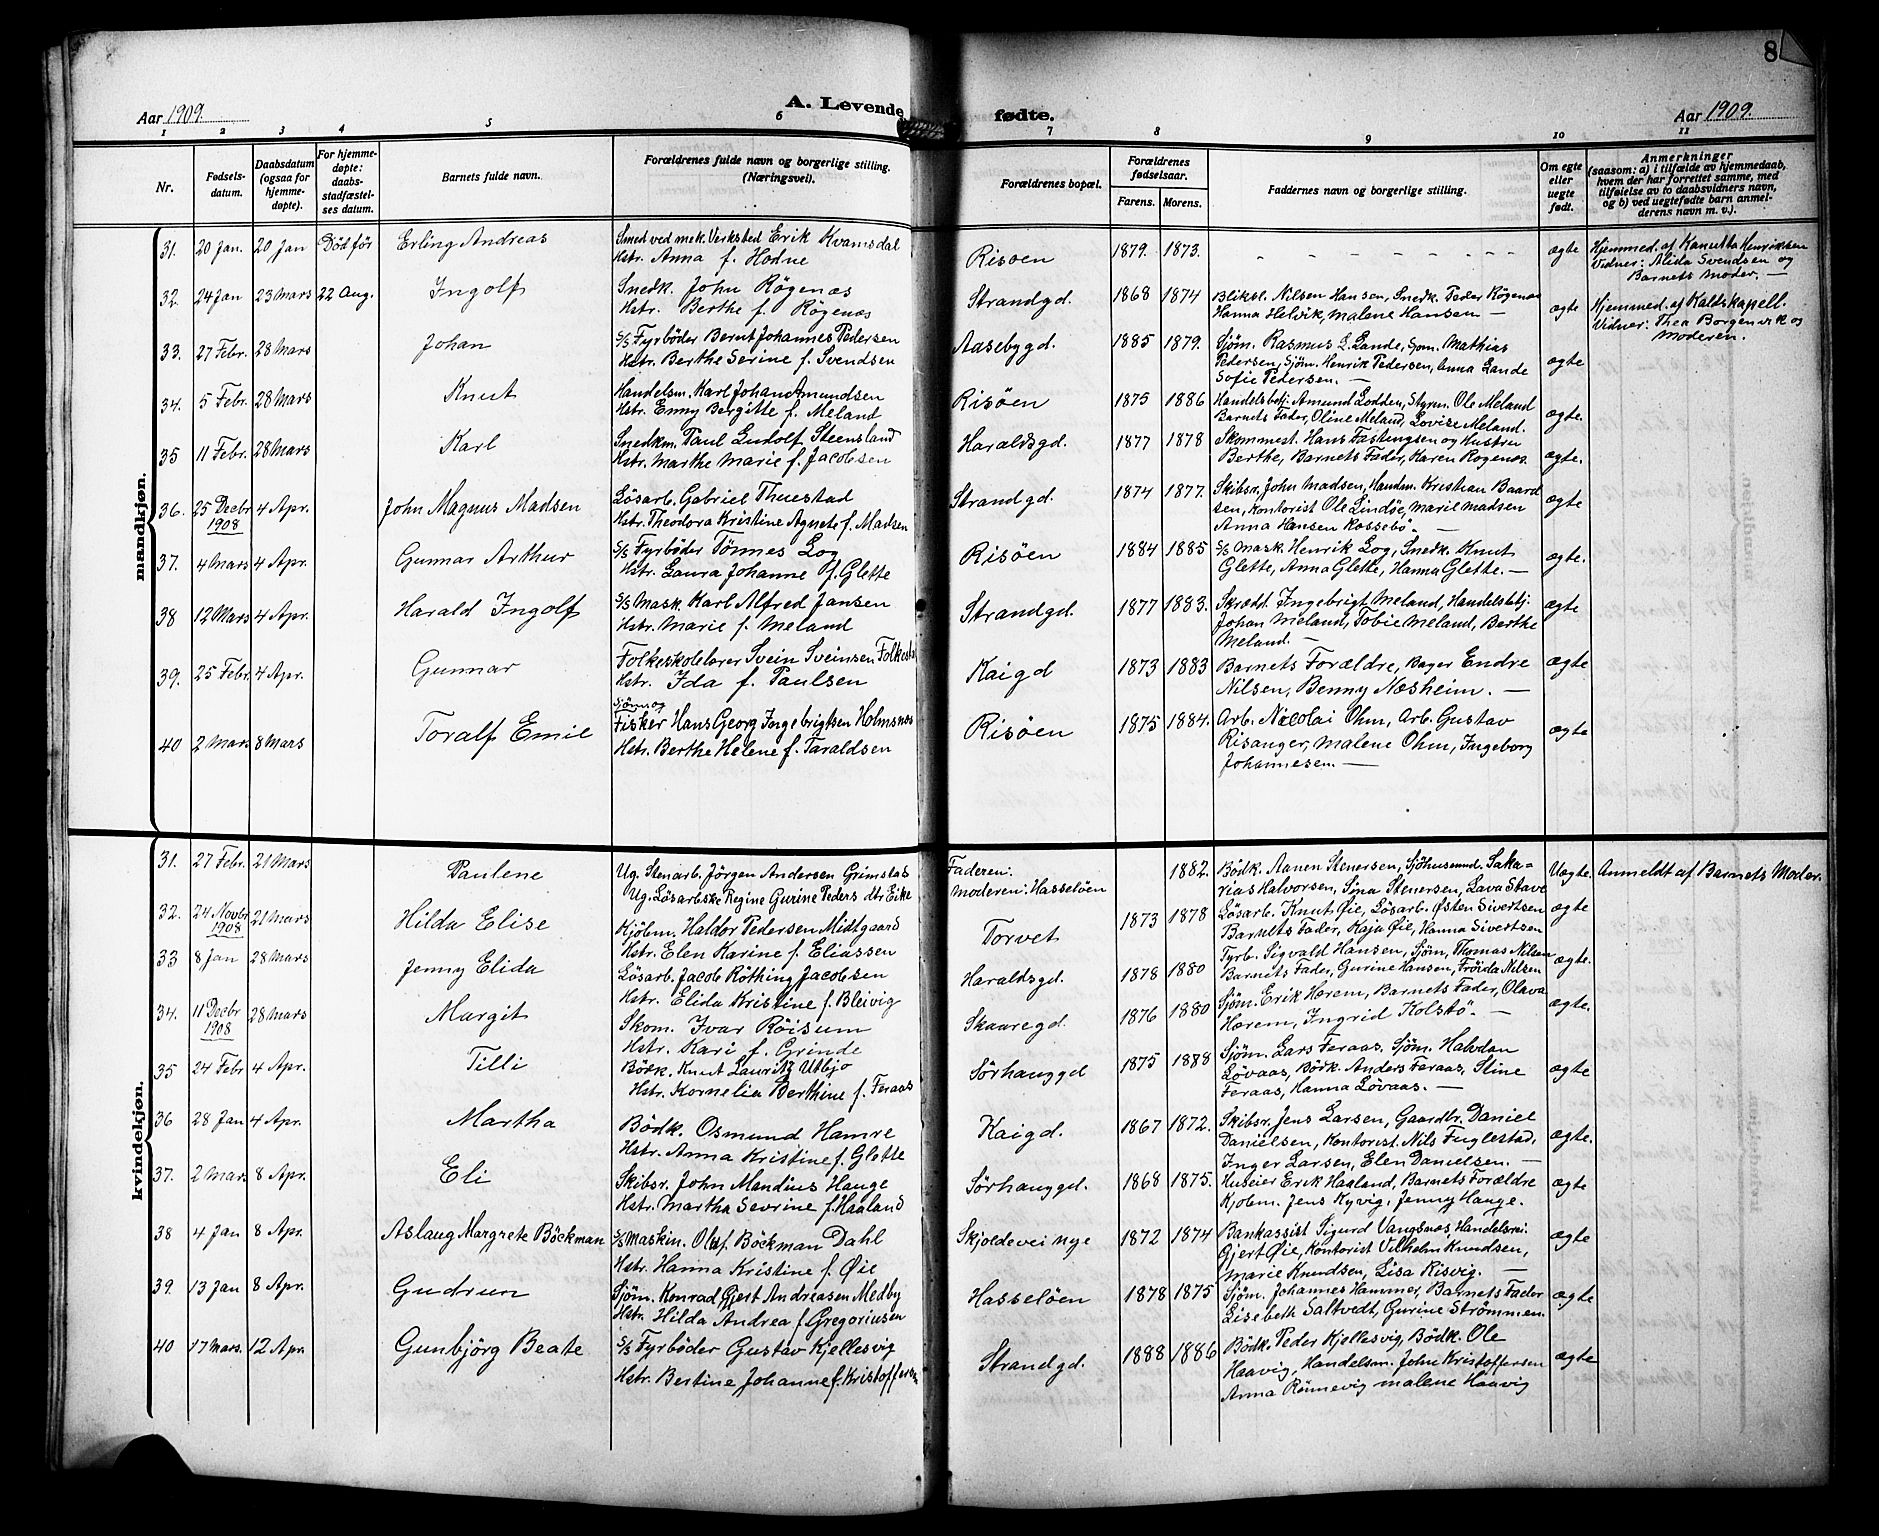 8
Aar 1909. A. Levende fødte. Aar 1909.
1 2 3 4 5 6 7 8 9 10 11
Nr. Fødsels-datum. Daabsdatum (ogsaa for hjemme-døpte). For hjemme-døpte: daabs-stadfæstel-ses datum. Barnets fulde navn. Forældrenes fulde navn og borgerlige stilling. (Næringsvei). Forældrenes bopæl. Forældrenes fødselsaar. Farens. Morens. Faddernes navn og borgerlige stilling. Om egte eller uegte født. Anmerkninger (saasom: a) i tilfælde av hjemmedaab, hvem der har forrettet samme, med tilføielse av to daabsvidners navn, og b) ved uegtefødte barn anmel-derens navn m. v.).
mandkjøn.
31. 20 Jan. 20 Jan Död för Erling Andreas Smed ved mek. Verksted Erik Kvamsdal Risöen 1879. 1873. ægte Hjemmed. af Kanutta Henriksen
Hstr. Anna f. Hodne Vidner: Alida Svendsen og
Barnets moder. —
32. 24 Jan 23 Mars 22 Aug. Ingolf Snedk. John Rögenæs Strandgd. 1868 1874 Bliksl. Nilsen Hansen, Snedk. Peder Rögenæs ægte Hjemmed. af Kaldskapell.
Hstr. Berthe f. Rögenæs Hanna Helvik, Malene Hansen — Vidner: Thea Borgenvik og
Moderen. —
33. 27 Febr. 28 Mars Johan S/S Fyrböder Bernt Johannes Pedersen Aasebygd. 1885 1879. Sjöm. Rasmus L. Lande, Sjöm. Mathias ægte
Hstr. Berthe Serine f. Svendsen Pedersen, Sjöm. Henrik Pedersen, Anna Lande
Sofie Pedersen. —
34. 5 Febr. 28 Mars Knut Handelsm. Karl Johan Amundsen Risöen 1875 1886 Handelsbetj. Amund Lodden, Styrm. Ole Meland ægte.
Hstr. Enny Bergitte f. Meland Barnets Fader, Oline Meland, Lovise Meland.
35 11 Febr. 28 Mars Karl Snedkm. Paul Ludolf Steensland Haraldsgd. 1877 1878 Skommest. Hans Fastingsen og Hustru ægte.
Hstr. Marthe Marie f. Jacobsen Berthe, Barnets Fader, Karen Rogenæs.
36. 25 Decbr 1908 4 Apr. John Magnus Madsen Lösarb. Gabriel Thuestad Strandgd. 1874 1877. Skibsr. John Madsen, Handm. Kristian Baard ægte
Hstr. Theodora Kristine Agnete f. Madsen sen, Kontorist Ole Lindöe, Marie Madsen
Anna Hansen Kossebö. —
37. 4 Mars 4 Apr. Gunnar Arthur S/S Fyrböder Tönnes Log Risöen 1884 1885 S/S Mask. Henrik Log, Snedk. Knut ægte.
Hstr. Laura Johanne f. Glette Glette, Anna Glette, Hanna Glette. —
38 12 Mars 4 Apr. Harald Ingolf S/S Mask. Karl Alfred Jansen Strandgd. 1877 1883. Skrædd. Ingebrigt Meland, Handelsbtj. ægte
Hstr. Marie f. Meland Johan Meland, Tobie Meland, Berthe
Meland. —
39. 25 Febr 4 Apr. Gunnar Folkeskolelærer Svein Sveinsen Kaigd 1873 1883 Barnets Forældre, Bager Endre ægte
Hstr. Ida f. Paulsen Nilsen, Benny Næsheim. —
40 2 Mars 8 Mars Toralf Emil Sjöm og Fisker Hans Georg Ingebrigtsen Holmsnæs Risöen 1875 1884. Arb. Nicolai Ohm, Arb. Gustav ægte
Hstr. Berthe Helene f. Taraldsen Risanger, Malene Ohm, Ingeborg
Johannesen. —
kvindekjøn.
31. 27 Febr. 21 Mars Paulene Ug. Stenarb. Jörgen Andersen Grimstad Faderen: 1882. Bödk. Aanen Stenersen, Sjöhusmd. Saka- Uægte. Anmeldt af Barnets Moder.
Ug. Lösarbske Regine Gurine Peders dtr Eike Moderen: Hasselöen rias Halvorsen, Sina Stenersen, Lava Stave
32. 24 Novbr 1908 21 Mars Hilda Elise Kjöbm. Haldor Pedersen Midtgaard Torvet 1873 1878 Lösarb. Knut Öie, Lösarb. Östen Sivertsen ægte
Hstr. Elen Karine f. Eliassen Barnets Fader, Kaja Öie, Hanna Sivertsen
33 8 Jan 28 Mars Jenny Elida Lösarb. Jacob Röthing Jacobsen Haraldsgd. 1878 1880 Fyrb. Sigvald Hansen, Sjöm. Thomas Nilsen ægte.
Hstr. Elida Kristine f. Bleivig Barnets Fader, Gurine Hansen, Fröida Nilsen
34. 11 Decbr 1908 28 Mars Margit Skom. Ivar Röisum Skaaregd. 1876 1880 Sjöm. Erik Hærem, Barnets Fader, Olava ægte.
Hstr. Kari f. Grinde Hærem, Ingrid Kolstö. —
35 24 Febr 4 Apr. Tilli Bödk. Knut Lauritz Utbjo Sörhauggd 1875 1888 Sjöm. Lars Feraas. Sjöm. Halvdan ægte
Hstr. Kornelia Berthine f. Feraas Lövaas, Bödk. Anders Feraas, Stine
Feraas, Hanna Lövaas. —
36 28 Jan 4 Apr. Martha Bödk. Osmund Hamre Kaigd. 1867 1872. Skibsr. Jens Larsen, Gaardbr. Daniel ægte.
Hstr. Anna Kristine f. Glette Danielsen, Kontorist. Nils Fuglestad,
Inger Larsen, Elen Danielsen. —
37. 2 Mars 8 Apr. Eli Skibsr. John Mandius Hauge Sörhauggd. 1868 1875. Huseier Erik Haaland, Barnets Forældre ægte
Hstr. Martha Sevrine f. Haaland Kjobm. Jens Kyvig, Jenny Hauge.
38 4 Jan 8 Apr. Aslaug Margrete Böckman S/S Maskin. Oluf Böckman Dahl Skjoldevei nye 1872 1874 Bankassist Sigurd Vangsnæs, Handelsrei. ægte
Hstr. Hanna Kristine f. Öie Gjert Öie, Kontorist Vilhelm Knudsen,
Marie Knudsen, Lisa Risvig. —
39. 13 Jan 8 Apr. Gudrun Sjöm. Konrad Gjert Andreasen Medby Hasselöen 1878 1875 Sjöm. Johannes Hammer, Barnets Fader ægte
Hstr. Hilda Andrea f. Gregoriusen Lisebeth Saltvedt, Gurine Strömmen
40 17 Mars. 12 Apr. Gunbjörg Beate S/S Fyrböder Gustav Kjellesvig Strandgd. 1888 1886 Bödk. Peder Kjellesvig, Bödk. Ole ægte
Hstr. Bertine Johanne f. Kristoffersen Haavig, Handelsm. John Kristoffersen
Anna Rönnevig Malene Haavig